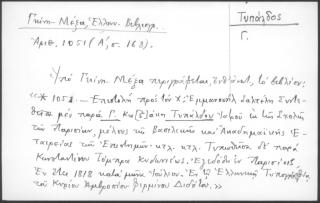 Γκίνη - Μέξα, Ἑλλην. Βιβλιογρ.
Ἀριθ. 1051 (Α', σ. 168).
Τυπάλδος
Γ.
Ὑπὸ Γκίνη - Μέξα περιγράφεται, τὸ βιβλίον:
«* 1051 — Ἐπιστολὴ πρὸς τὸν Χ: Ἐμμανουὴλ Συντε-
μὲν παρὰ Γ. Κα[ζ]άκη Τυπάλδου Ἰατροῦ ἐκ τῆς Σχολῆς
τῶν Παρισίων, μέλους τῆς Βασιλικῆς καὶ Ἀκαδημαικῆς Ἑ-
ταιρείας τῶν Ἐπιστημῶν κτλ. κτλ. Τυπωθεῖσα δὲ παρὰ
Κωνσταντίνου Τόμπρα Κυδωνιέως. Ἐξεδόθη ἐν Παρισίοις
Ἐν ἔτει 1818 κατὰ μῆνα Ἰούλιον. Ἐκ τῆς Ἑλληνικῆς Τυπογραφίας
τοῦ Κυρίου Ἀμβροσίου Φιρμίνου Διδότου.»